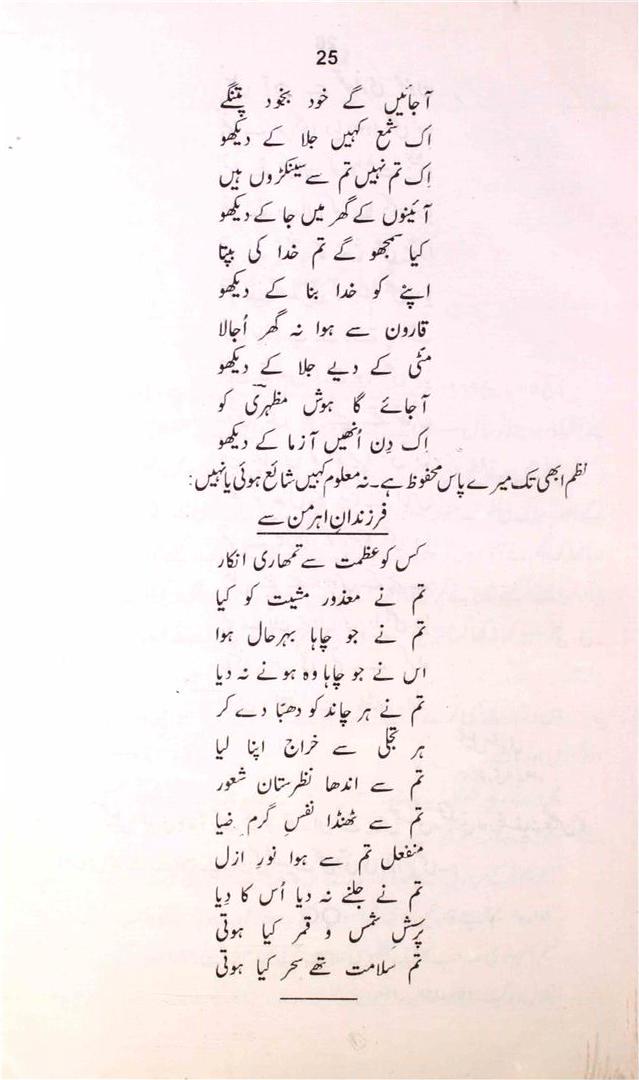 25
آجائیں گے خود بخود پتنگے
اک شمع کہیں جلا کے دیکھو
اِک تم نہیں تم سے سینکڑوں ہیں
آئینوں کے گھر میں جا کے دیکھو
کیا سمجھو گے تم خدا کی بپتا
اپنے کو خدا بنا کے دیکھو
قارون سے ہوا نہ گھر اُجالا
مٹی کے دیے جلا کے دیکھو
آجائے گا ہوش مظہریؔ کو
اک دِن اُنھیں آزما کے دیکھو
نظم ابھی تک میرے پاس محفوظ ہے۔ نہ معلوم کہیں شائع ہوئی یا نہیں:
فرزندانِ اہرمن سے
کس کو عظمت سے تمھاری انکار
تم نے معذور مشیت کو کیا
تم نے جو چاہا بہرحال ہوا
اس نے جو چاہا وہ ہونے نہ دیا
تم نے ہر چاند کو دھبّا دے کر
ہر تجلی سے خراج اپنا لیا
تم سے اندھا نظرستان شعور
تم سے ٹھنڈا نفسِ گرمِ ضیا
منفعل تم سے ہوا نورِ ازل
تم نے جلنے نہ دیا اُس کا دِیا
پرسشِ شمس و قمر کیا ہوتی
تم سلامت تھے سحر کیا ہوتی